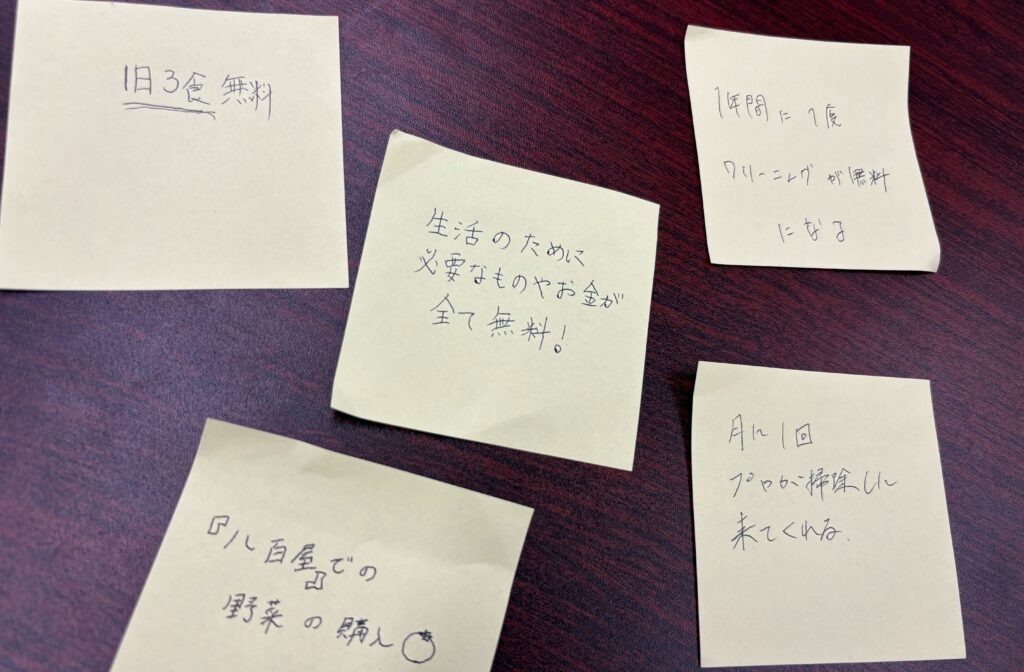 1日3食 無料
1年間に1度
クリーニングが無料
になる
生活のために
必要なものやお金が
全て無料!
月に1回
プロが掃除しに
来てくれる.
『八百屋』での
野菜の購入